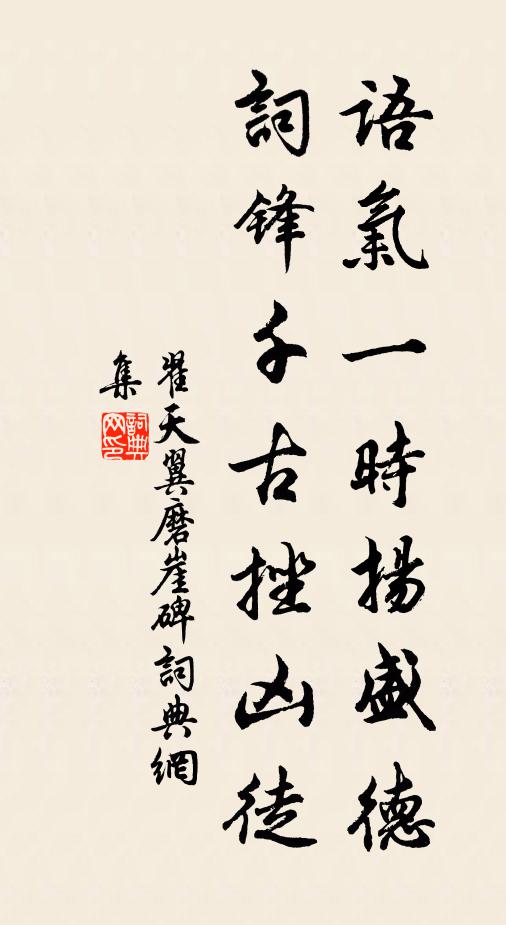 語氣一時揚盛德
詞鋒千古挫凶徒
翟天翼磨崖碑詞典網
集
詞典
网印